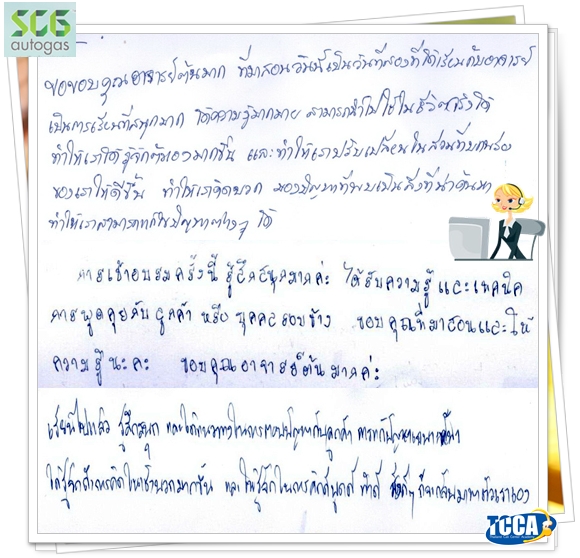 SCG
autogas
ขอขอบคุณอาจารย์ต้นมาก ที่มาสอนวันนี้เป็นวันที่สองที่ได้เรียนกับอาจารย์
เป็นการเรียนที่สนุกมาก ได้ความรู้มากมาย สามารถนำไปใช้ในชีวิตจริงได้
ทำให้เราได้รู้จักตัวเองมากขึ้น และทำให้เราปรับเปลี่ยนในส่วนที่บกพร่อง
ของเราให้ดีขึ้น ทำให้เราคิดบวก มองปัญหาที่พบเป็นสิ่งที่น่าค้นหา
ทำให้เราสามารถแก้ไขปัญหาต่างๆ ได้
การเข้าอบรมครั้งนี้ รู้สึกสนุกมากค่ะ ได้รับความรู้ และเทคนิค
การพูดคุยกับลูกค้า หรือ บุคคลรอบข้าง ขอบคุณที่มาสอนและให้
ความรู้นะคะ ขอบคุณอาจารย์ต้นมากค่ะ
เรียนไปแล้ว รู้สึกสนุก และได้แนวทางในการตอบปัญหากับลูกค้า
ได้รู้จักการคิดในเชิงบวกมากขึ้น และได้รู้จักในการคิดดี พูดดี ทำดี
TCCA